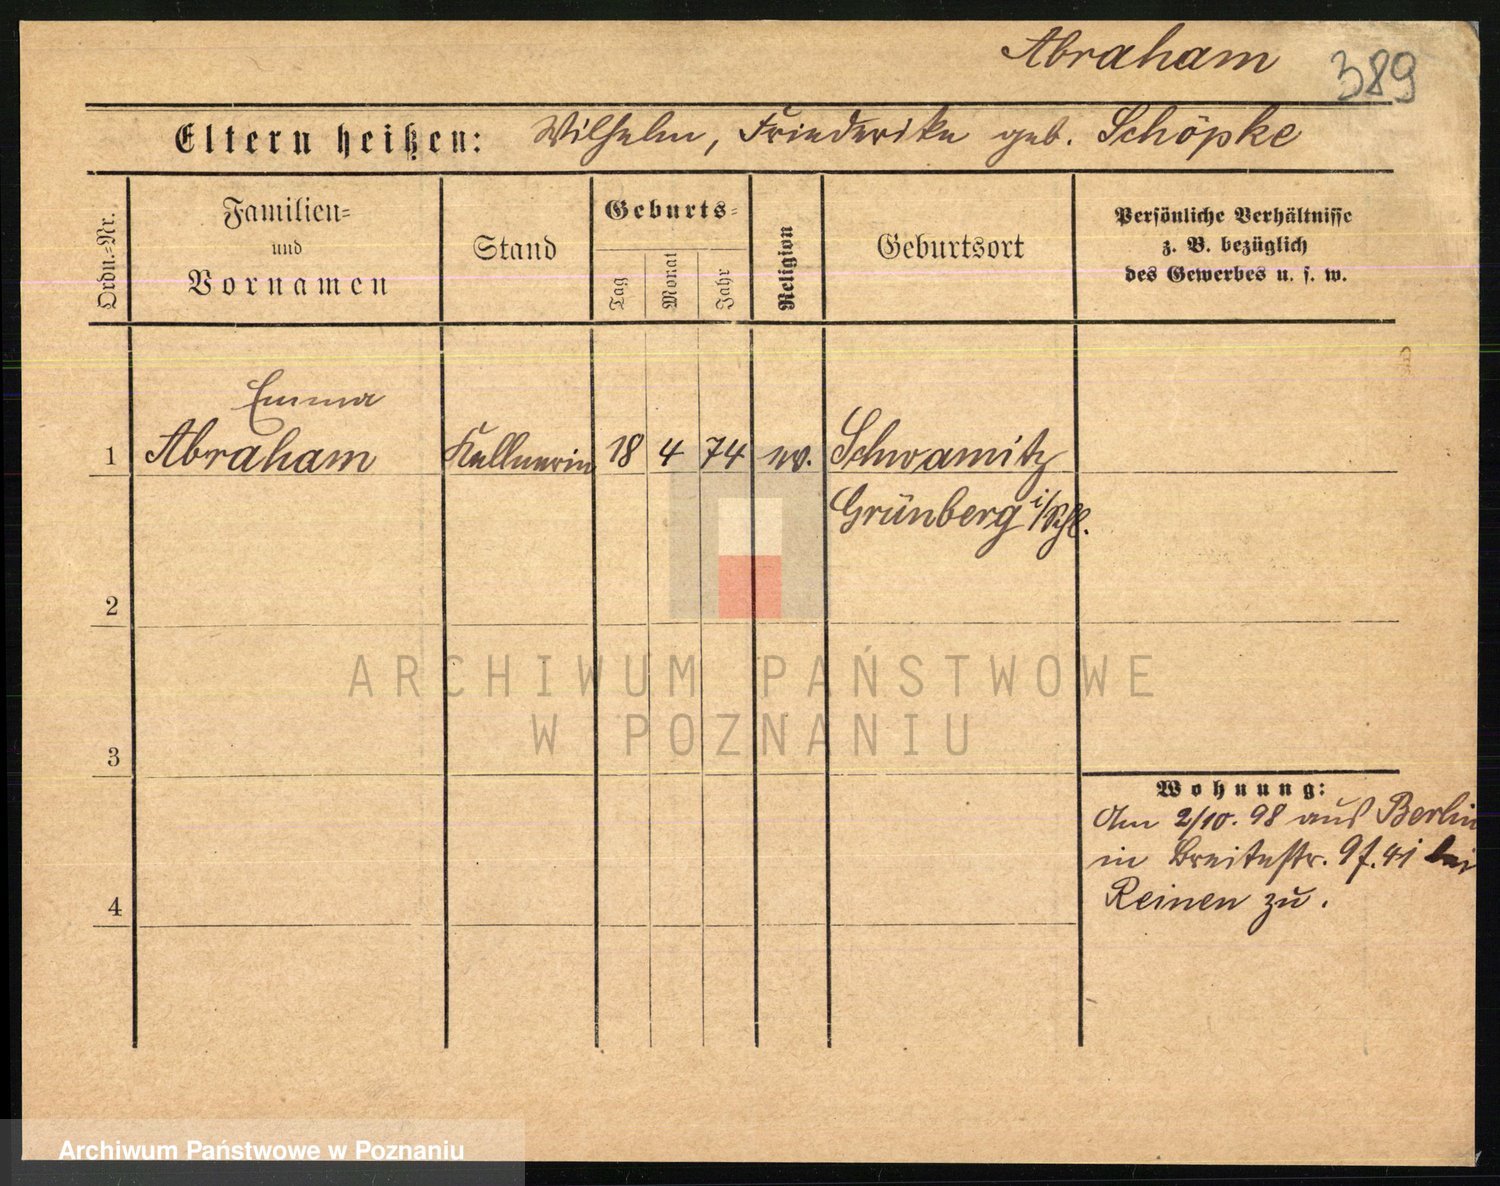 Abraham 389
Eltern heißen: Wilhelm, Friederike geb. Schöpke
Ordn.=Nr.
Familien=
und
Vornamen
Stand
Geburts=
Tag
Monat
Jahr
Religion
Geburtsort
Persönliche Verhältnisse
z. B. bezüglich
des Gewerbes u. s. w.
Emma
1 Abraham Kellnerin 18 4 74 ev. Schwamitz
Grünberg i/Schl.
2
ARCHIWUM PAŃSTWOWE
W POZNANIU
3
Wohnung:
Am 2/10. 98 aus Berlin
in Breitestr. 9 f. 41 bei
4
Reinen zu.
Archiwum Państwowe w Poznaniu